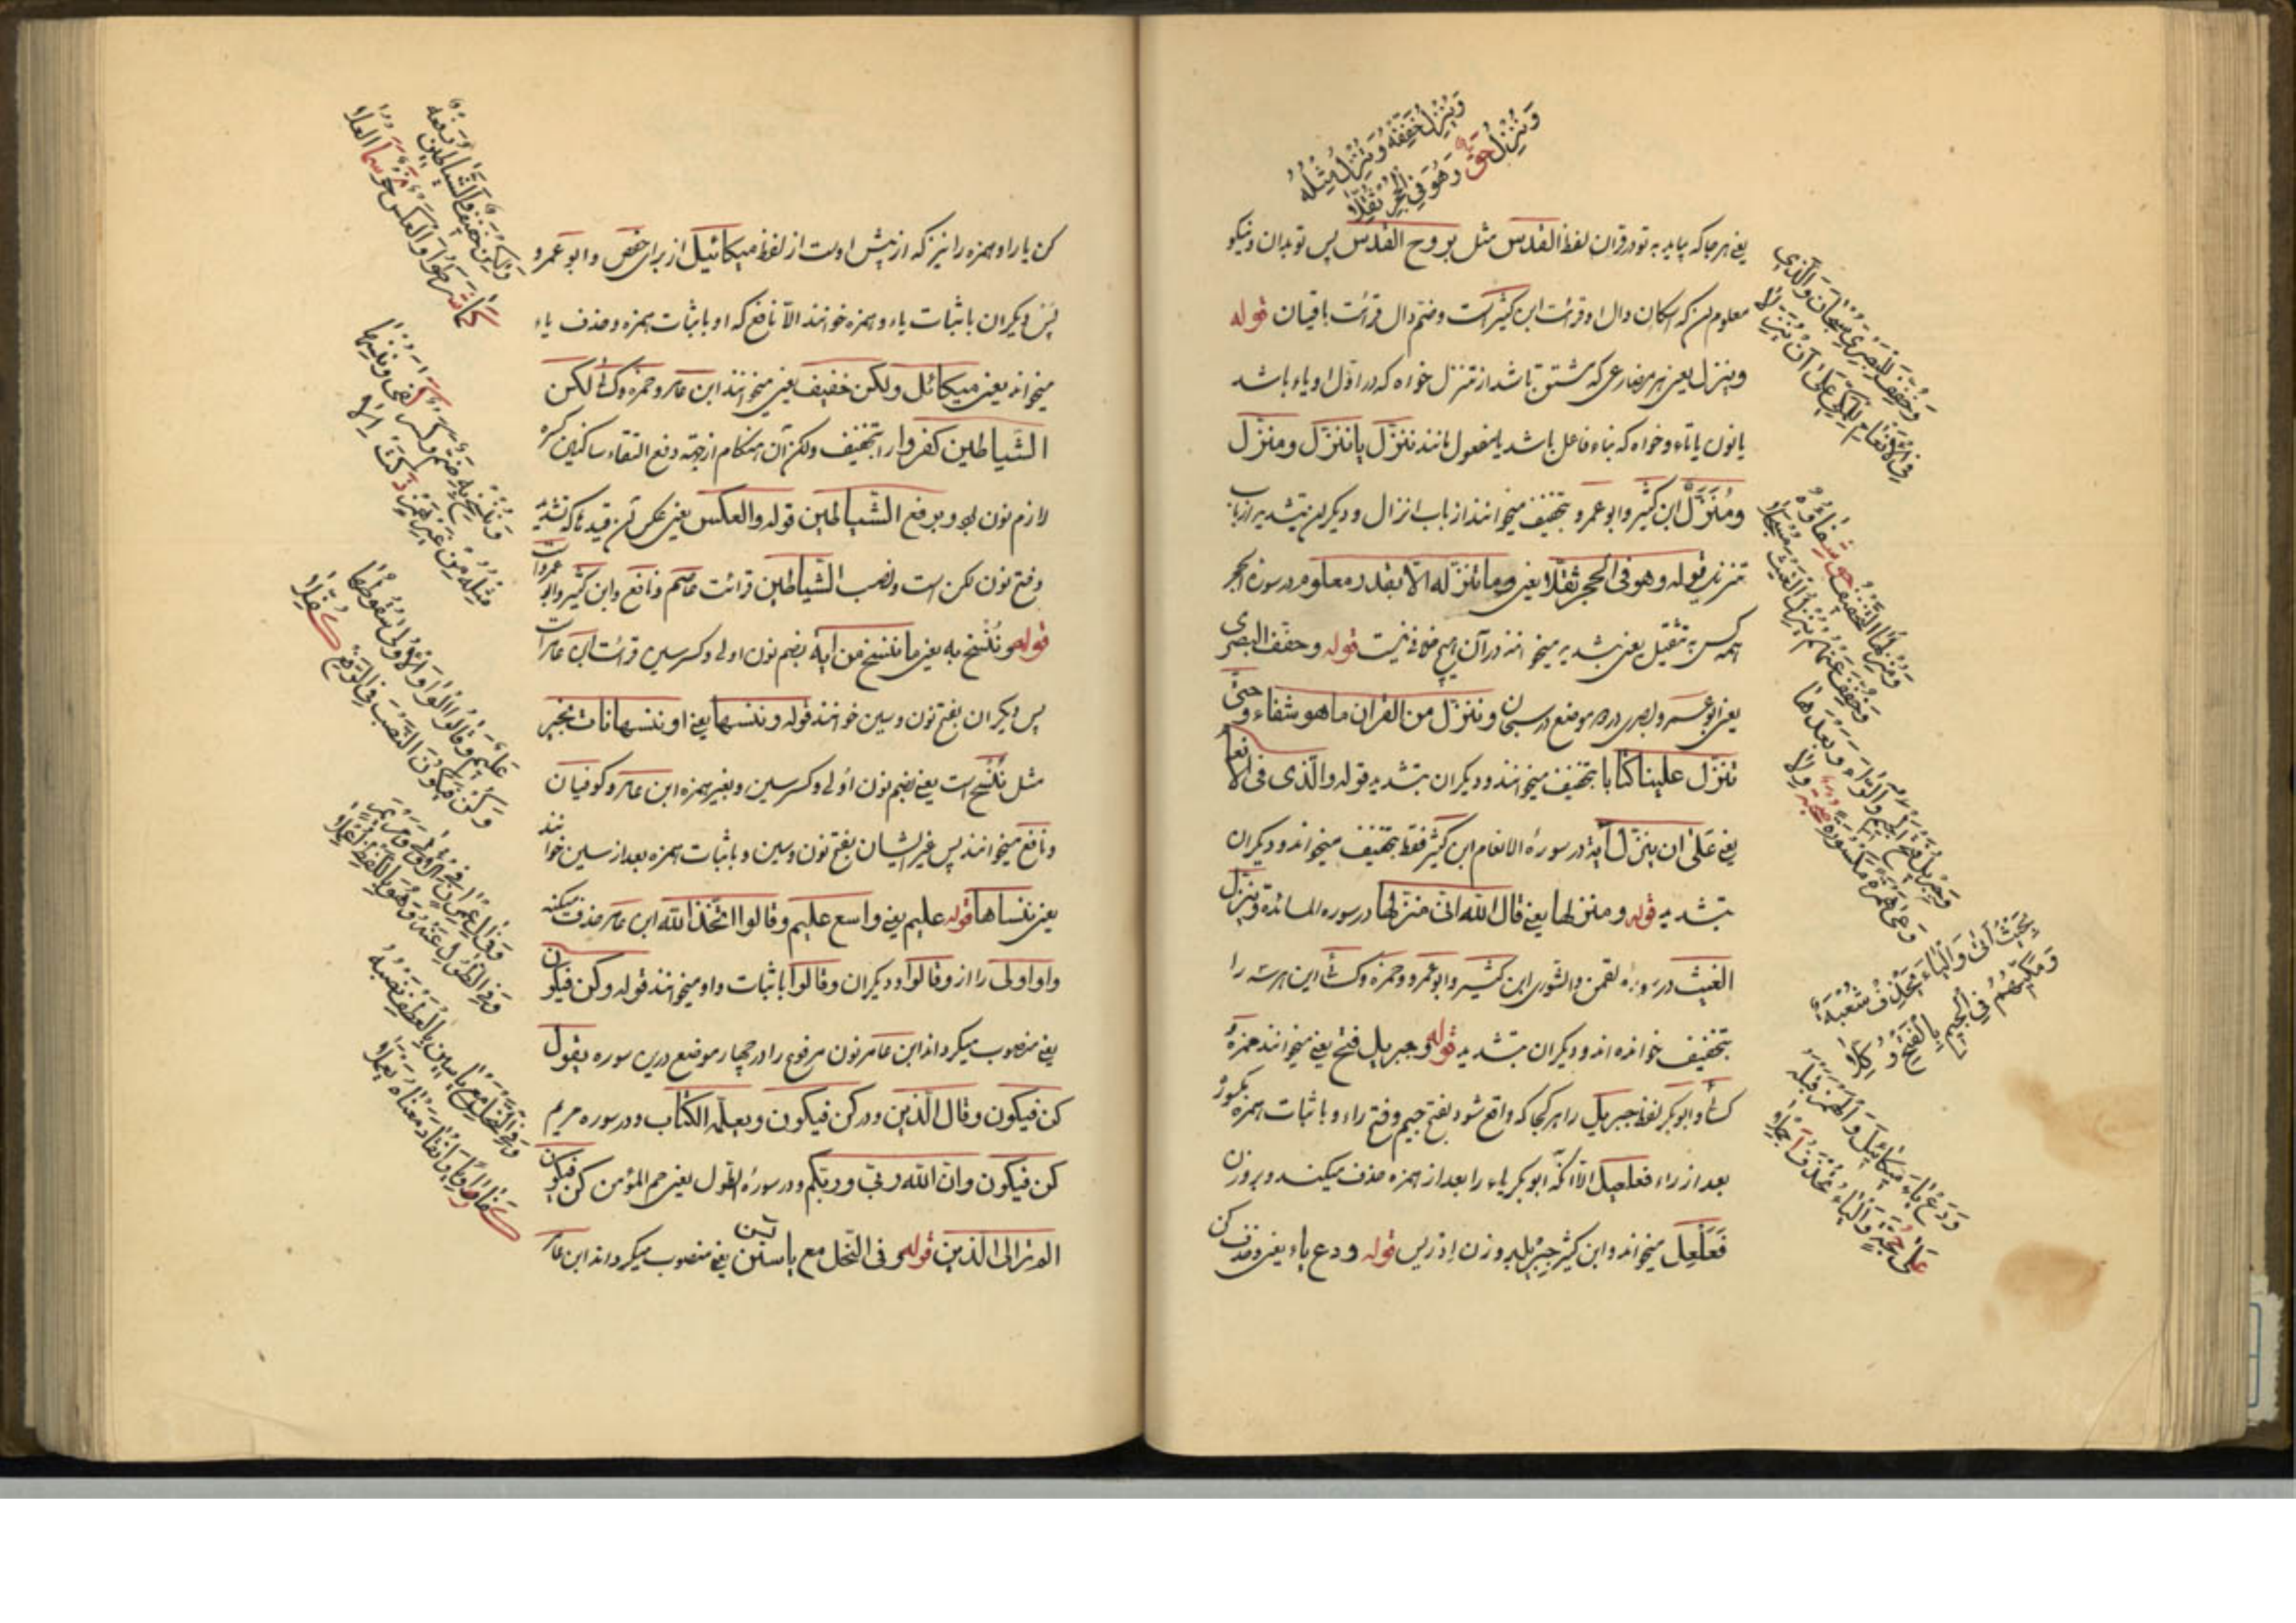 وَيُنْزِلُ خَفِّفْهُ وَتُنْزِلُ مِثْلُهُ
وَنُنْزِلُ حَقٌّ وَهُوَ فِي الْحِجْرِ ثُقِّلَا
یعنی هر جا که بیاید به تو در قران لفظ القدس مثل بروح القدس پس تو بدان و نیکو
معلوم کن که اسکان دال او قرائت ابن کثیر است و ضم دال قرائت باقیان قوله
وینزل یعنی هر مضارعی که مشتق باشد از تنزل خواه که در اول او یاء باشد
یا نون یا تاء و خواه که بناء فاعل باشد یا مفعول مانند ننزّل یا تنزّل و منزّل
ومُنَزَّل ابن کثیر و ابو عمرو بتخفیف میخوانند از باب انزال و دیگران بتشدید از باب
تنزیل قوله وهو فی الحجر ثقّلا یعنی وما ننزّله الّا بقدر معلوم در سوره الحجر
همه کس بتثقیل یعنی بتشدید میخوانند در آن هیچ خلافی نیست قوله وخفّف البصری
یعنی ابو عمرو بصری در دو موضع در سبحان وننزّل من القران ما هو شفاء وحتّی
تنزّل علینا کتابا بتخفیف میخوانند و دیگران بتشدید قوله والّذی فی الانعام
یعنی علی ان ینزّل آیة در سورهٔ الانعام ابن کثیر فقط بتخفیف میخواند و دیگران
بتشدید قوله ومنزلها یعنی قال الله انّی منزلها در سوره المائدة وینزل
الغیث در سوره لقمن والشوری ابن کثیر و ابو عمرو و حمزه و کسائی این هر سه را
بتخفیف خوانده اند و دیگران بتشدید قوله وجبریل فتح یعنی میخوانند حمزه و
کسائی و ابو بکر لفظ جبریل را هر کجا که واقع شود بفتح جیم و فتح راء و با ثبات همزه مکسوره
بعد از راء فعلعیل الّا انّکه ابو بکر یاء را بعد از همزه حذف میکند و بر وزن
فَعَلَعِل میخواند و ابن کثیر جَبْرِیل بر وزن اِدْریس قوله ودع یاء یعنی و حذف کن
وَخُفِّفَ لِلْبَصْرِي بِسُبْحَانَ وَالَّذِي
فِي الْاَنْعَامِ لِلْمَكِّي عَلَى اَنْ يُنَزِّلَا
وَمُنْزِلُهَا التَّخْفِيفُ حَقٌّ شِفَاؤُهُ
وَخُفِّفَ عَنْهُمْ يُنْزِلُ الْغَيْثَ مُسْجَلَا
وَجِبْرِيلَ فَتْحُ الْجِيمِ وَالرَّاءِ وَبَعْدَهَا
وَعَى هَمْزَةً مَكْسُورَةً صُحْبَةٌ وِلَا
بِحَيْثُ اَتَى وَالْيَاءَ يَحْذِفُ شُعْبَةٌ
وَمَكِّيُّهُمْ فِي الْجِيمِ بِالْفَتْحِ وُكِّلَا
وَدَعْ يَاءَ مِيكَائِيلَ وَالْهَمْزَ قَبْلَهُ
عَلَى حُجَّةٍ وَالْيَاءُ يُحْذَفُ اَجْمَلَا
کن یا را و همزه را نیز که از پیش اوست از لفظ میکائیل از برای حفص و ابو عمرو
پس دیگران با ثبات یاء و همزه خوانند الّا نافع که او با ثبات همزه و حذف یاء
میخواند یعنی میکائل ولکن خفیف یعنی میخوانند ابن عامر و حمزه و کسائی لکن
الشّیاطین کفروا را بتخفیف ولکن آن هنکام از جهة دفع التقاء ساکنین کسره
لازم نون بود و برفع الشّیاطین قوله والعکس یعنی عکس آن قیدها که تشدید
وفتح نون لکن است و نصب الشّیاطین قرائت عاصم و نافع و ابن کثیر و ابو عمرو است
قوله وننسخ به یعنی ما ننسخ من ایة بضم نون اولی و کسر سین قرائت ابن عامر است
پس دیگران بفتح نون و سین خوانند قوله وننسها یعنی او ننسها نات بخیر
مثل نُنْسِخ است یعنی بضم نون اولی و کسر سین و بغیر همزه ابن عامر و کوفیان
و نافع میخوانند پس غیر ایشان بفتح نون و سین و با ثبات همزه بعد از سین خوانند
یعنی ننساها قوله علیم یعنی واسع علیم وقالوا اتّخذ الله ابن عامر حذف میکند
واو اولی را از وقالوا و دیکران وقالوا با ثبات واو میخوانند قوله وکن فیکون
یعنی منصوب میکرداند ابن عامر نون مرفوع را در چهار موضع درین سوره یقول
کن فیکون وقال الّذین ودر کن فیکون ویعلّمه الکتاب ودر سوره مریم
کن فیکون وانّ الله ربّی وربّکم ودر سورهٔ الطّول یعنی حم المؤمن کن فیکون
الم تر الی الّذین قوله وفی النّحل مع یاسین یعنی منصوب میکرداند ابن عامر
وَلَكِنْ خَفِيفٌ وَالشَّيَاطِينُ رَفْعُهُ
كَمَا شَرَطُوا وَالْعَكْسُ نَحْوٌ سَمَا الْعُلَا
وَنَنْسَخْ بِهِ ضَمٌّ وَكَسْرٌ كَفَى وَنُنْسِهَا
مِثْلُهُ مِنْ غَيْرِ هَمْزٍ ذَكَتْ اِلَا
عَلِيمٌ وَقَالُوا الْوَاوُ الْاُولَى سُقُوطُهَا
وَكُنْ فَيَكُونُ النَّصْبُ فِي الرَّفْعِ كُفِّلَا
وَفِي آلِ عِمْرَانَ فِي الْاُولَى وَمَرْيَمَ
وَفِي الطَّوْلِ عَنْهُ وَهُوَ بِاللَّفْظِ اُعْمِلَا
وَفِي النَّحْلِ مَعْ يَاسِينَ بِالْعَطْفِ نَصْبُهُ
كَفَى رَاوِيًا وَانْقَادَ مَعْنَاهُ يَعْمَلَا